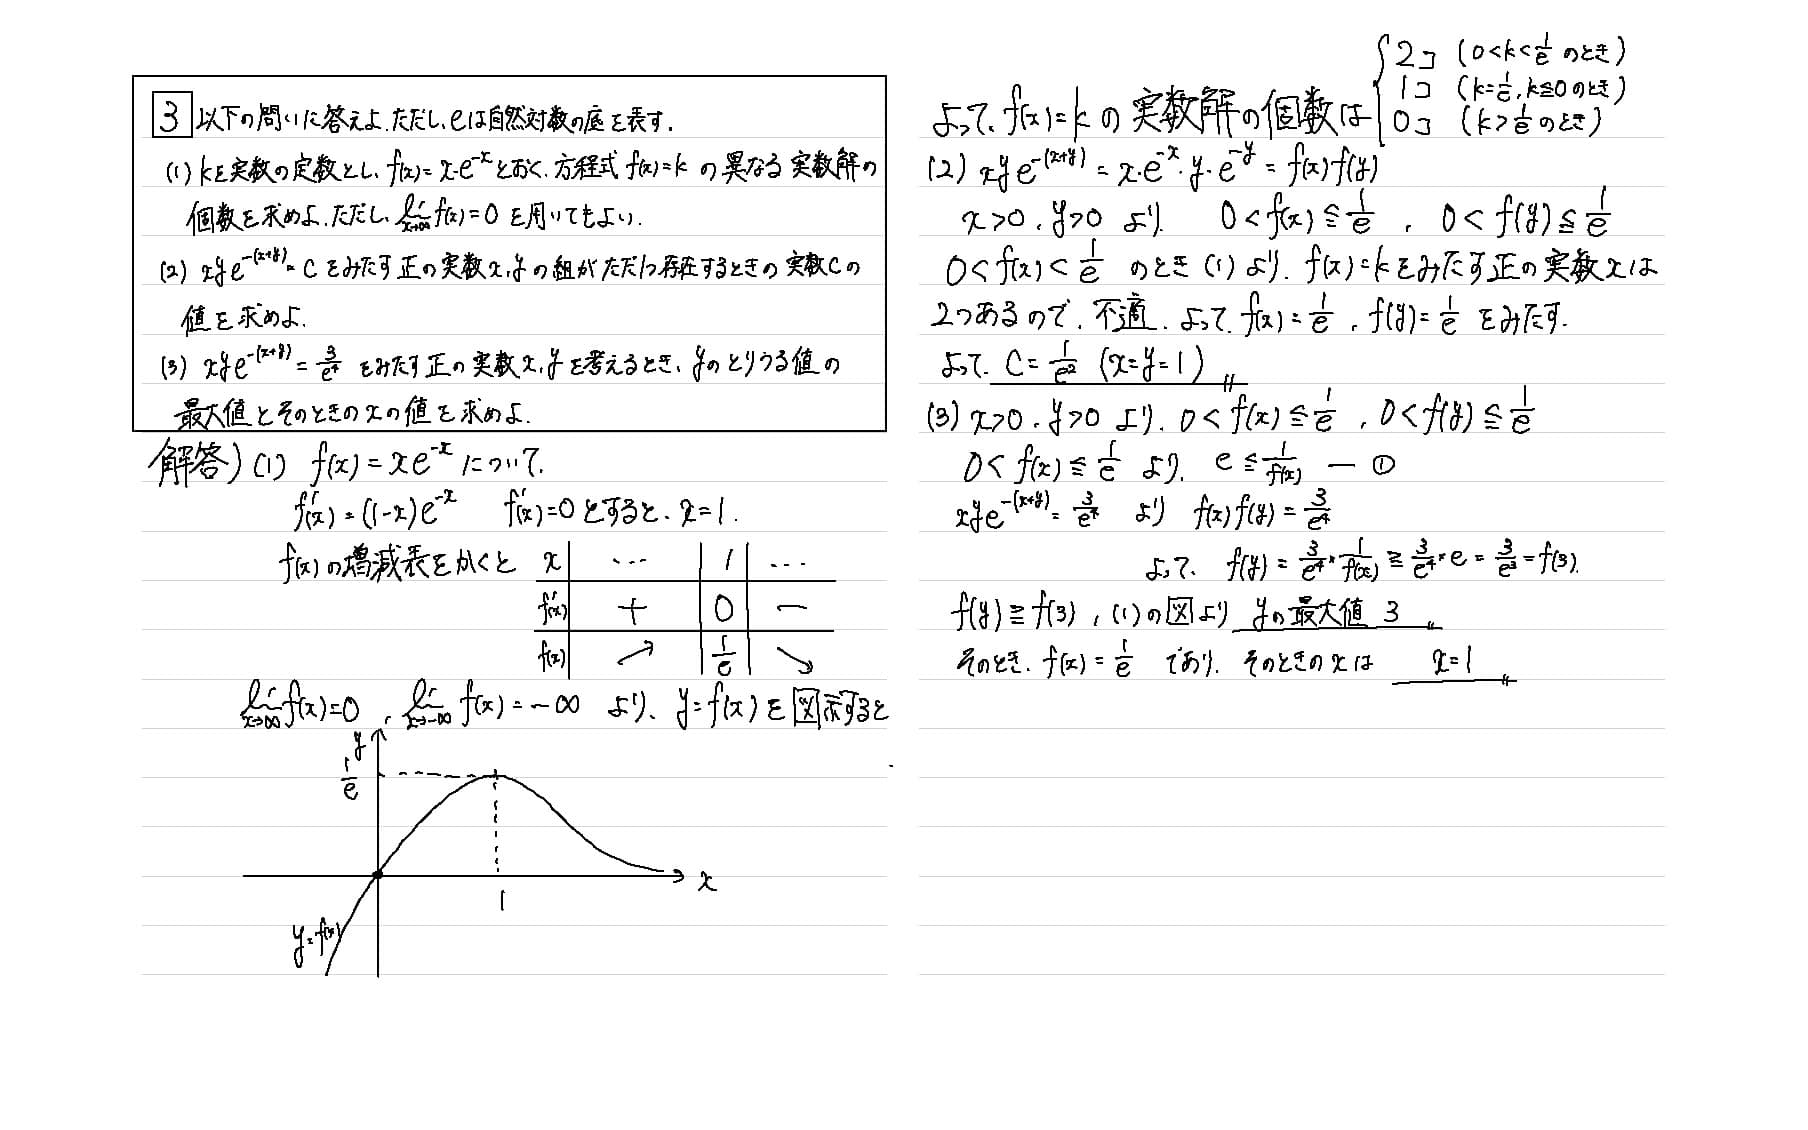 3 以下の問いに答えよ.ただし,eは自然対数の底を表す.
(1) kを実数の定数とし、f(x)=x・e^{-x}とおく.方程式 f(x)=k の異なる実数解の
個数を求めよ.ただし、lim_{x→∞} f(x)=0 を用いてもよい.
(2) xye^{-(x+y)}=C をみたす正の実数x,yの組がただ1つ存在するときの実数Cの
値を求めよ.
(3) xye^{-(x+y)}=3/e^4 をみたす正の実数x,yを考えるとき、yのとりうる値の
最大値とそのときのxの値を求めよ.
解答) (1) f(x)=xe^{-x} について.
f'(x)=(1-x)e^{-x} f'(x)=0とすると、x=1.
f(x)の増減表をかくと
x … 1 …
f'(x) + 0 −
f(x) ↗ 1/e ↘
lim_{x→∞} f(x)=0 , lim_{x→-∞} f(x)=-∞ より、y=f(x)を図示すると
y
1/e
x
1
y=f(x)
よって、f(x)=k の実数解の個数は
2コ (0<k<1/e のとき)
1コ (k=1/e, k≦0 のとき)
0コ (k>1/e のとき)
(2) xye^{-(x+y)}=x・e^{-x}・y・e^{-y}=f(x)f(y)
x>0, y>0 より. 0<f(x)≦1/e , 0<f(y)≦1/e
0<f(x)<1/e のとき (1)より. f(x)=kをみたす正の実数xは
2つあるので、不適. よって、f(x)=1/e , f(y)=1/e をみたす.
よって、C=1/e^2 (x=y=1)
(3) x>0, y>0 より. 0<f(x)≦1/e , 0<f(y)≦1/e
0<f(x)≦1/e より、e≦1/f(x) ― ①
xye^{-(x+y)}=3/e^4 より f(x)f(y)=3/e^4
よって、f(y)=3/e^4・1/f(x)≧3/e^4・e=3/e^3=f(3).
f(y)≧f(3) , (1)の図より yの最大値 3
そのとき. f(x)=1/e であり. そのときのxは x=1